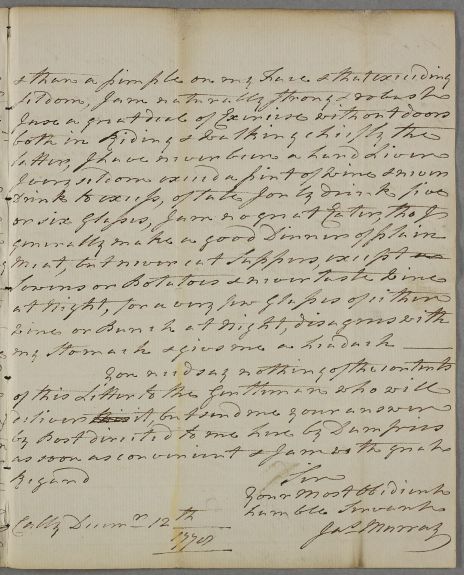 & than a pimple on my face & that exceeding
seldom, I am naturally strong & robust
I use a great deal of Exercise without doors
both in Riding & Walking chiefly the
latter, I have never been a hard Liver
I very seldom exceed a pint of Wine & never
drink to excess, of late I only drink five
or six glasses, I am no great Eater, tho I
generally make a good Dinner of plain
Meat, but never eat Suppers, except
or Potatoes & never taste Wine
at Night, for a very few Glasses of either
Wine or Punch at Night, disagrees with
my Stomach & gives me a headach
You need say nothing of the contents
of this Letter to the Gentleman who will
deliver it, but send me your answer
by Post directed to me here by Dumfries
as soon as convenient & I am with great
Regard
Sir
Your Most Obedient
humble Servant
Jas. Murray
Cally Decemr. 12th